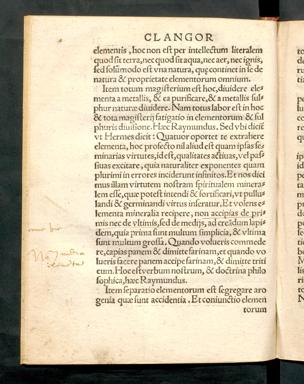 CLANGOR
elementis, hoc non est per intellectum literalem
quod sit terra, nec quod sit aqua, nec aer, nec ignis,
sed solummodo est vna natura, quę continet in se de
natura & proprietate elementorum omnium.
Item totum magisterium est hoc, diuidere ele-
menta a metallis, & ea purificare, & a metallis sul-
phur naturæ diuidere. Nam totus labor est in hoc
& tota magisterij fatigatio in elementorum & sul-
phuris diuisione. Hæc Raymundus. Sed vbi dicit
vt Hermes dicit: Quatuor oportet te extrahere
elementa, hoc profecto nil aliud est quam ipsas se-
minarias virtutes, id est, qualitates actiuas, vel pas-
siuas excitare, quia naturaliter exponentes quam
plurimi in errores inciderunt infinitos. Et nos dici
mus illam virtutem nostram spiritualem minera-
lem esse, quæ potest intendi & fortificari, vt pullu-
landi & germinandi virtus inseratur. Et volens e-
lementa mineralia recipere, non accipias de pri-
mis nec de vltimis, sed de medijs, ad creādam lapi-
dem, quia prima sunt multum simplicia, & vltima
sunt multum grossa. Quando volueris commede
re, capias panem & dimitte farinam, et quando vo
lueris facere panem accipe farinam, & dimitte triti
cum. Hoc est verbum nostrum, & doctrina philo
sophica, hæc Raymundus.
Item separatio elementorum est segregare aro
genia quæ sunt accidentia. Et coniunctio elemen
torum